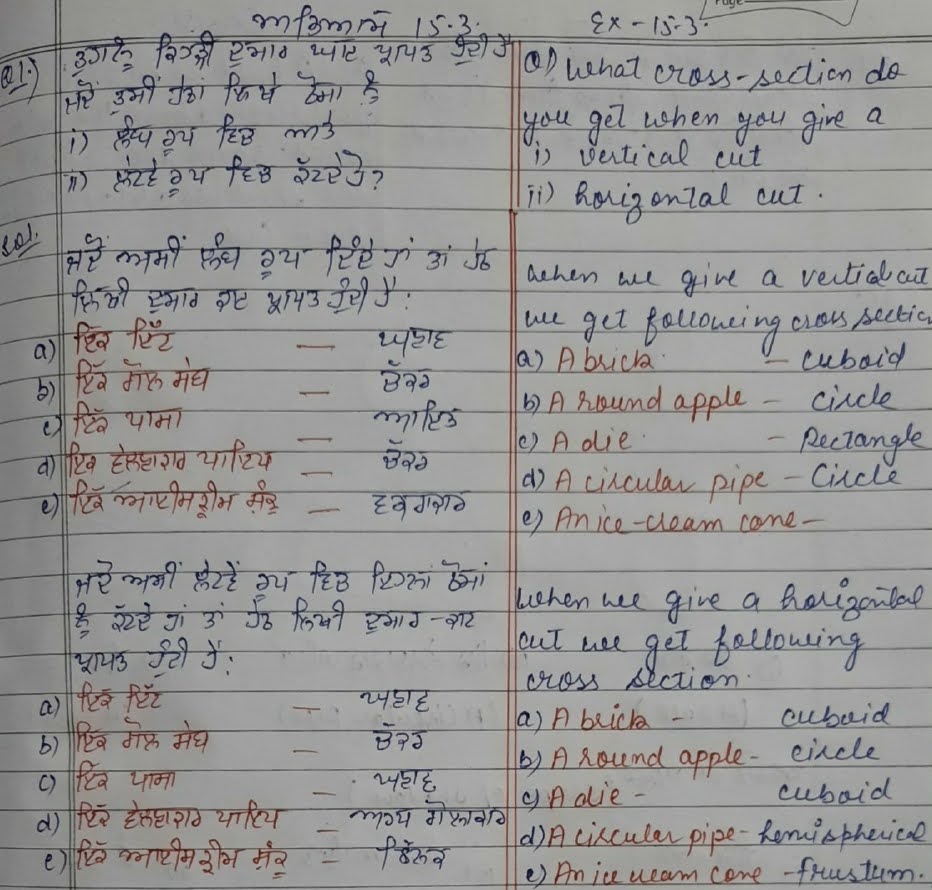 ਅਭਿਆਸ 15.3. Ex - 15.3.
Q1.) ਤੁਹਾਨੂੰ ਕਿਹੜੀ ਦੁਆਰ ਘਾਟ ਪ੍ਰਾਪਤ ਹੁੰਦੀ ਹੈ
ਜਦੋਂ ਤੁਸੀਂ ਹੇਠਾਂ ਲਿਖੇ ਠੋਸਾਂ ਨੂੰ
i) ਲੰਬ ਰੂਪ ਵਿਚ ਅਤੇ
ii) ਲੇਟਵੇਂ ਰੂਪ ਵਿਚ ਕੱਟਦੇ ਹੋ?
Sol. ਜਦੋਂ ਅਸੀਂ ਲੰਬ ਰੂਪ ਦਿੰਦੇ ਹਾਂ ਤਾਂ ਹੇਠ
ਲਿਖੀ ਦੁਆਰ ਕਾਟ ਪ੍ਰਾਪਤ ਹੁੰਦੀ ਹੈ:
a) ਇੱਕ ਇੱਟ — ਘਣਾਵ
b) ਇੱਕ ਗੋਲ ਸੇਬ — ਚੱਕਰ
c) ਇੱਕ ਪਾਸਾ — ਆਇਤ
d) ਇੱਕ ਵੇਲਣਾਕਾਰ ਪਾਇਪ — ਚੱਕਰ
e) ਇੱਕ ਆਈਸਕ੍ਰੀਮ ਸ਼ੰਕੂ —
ਜਦੋਂ ਅਸੀਂ ਲੇਟਵੇਂ ਰੂਪ ਵਿਚ ਇਹਨਾਂ ਠੋਸਾਂ
ਨੂੰ ਕੱਟਦੇ ਹਾਂ ਤਾਂ ਹੇਠ ਲਿਖੀ ਦੁਆਰ-ਕਾਟ
ਪ੍ਰਾਪਤ ਹੁੰਦੀ ਹੈ:
a) ਇੱਕ ਇੱਟ — ਘਣਾਵ
b) ਇੱਕ ਗੋਲ ਸੇਬ — ਚੱਕਰ
c) ਇੱਕ ਪਾਸਾ — ਘਣਾਵ
d) ਇੱਕ ਵੇਲਣਾਕਾਰ ਪਾਇਪ — ਅਰਧ ਗੋਲਾਕਾਰ
e) ਇੱਕ ਆਈਸਕ੍ਰੀਮ ਸ਼ੰਕੂ —
Q1) What cross-section do
you get when you give a
i) vertical cut
ii) horizontal cut.
when we give a vertical cut
we get following cross section
a) A brick. - cuboid
b) A round apple - circle
c) A die. - Rectangle
d) A circular pipe - Circle
e) An ice-cream cone -
when we give a horizontal
cut we get following
cross section.
a) A brick - cuboid
b) A round apple - circle
c) A die - cuboid
d) A circular pipe - hemispherical
e) An ice cream cone - frustum.